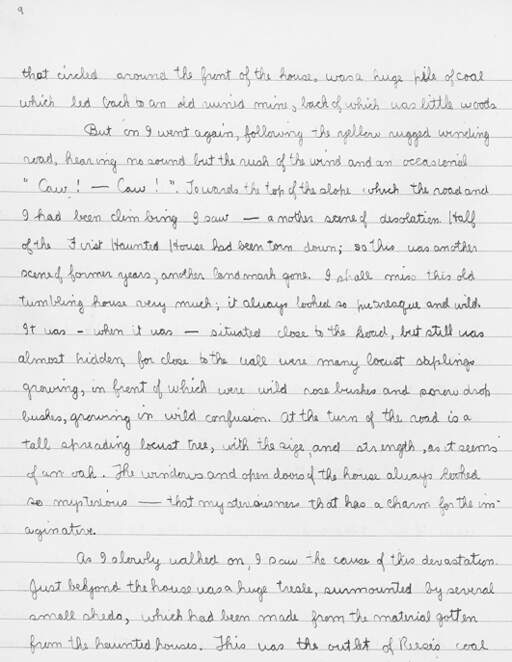 9
that circled around the front of the house, was a huge pile of coal
which led back to an old ruined mine, back of which was little woods
But on I went again, following the yellow rugged winding
road, hearing no sound but the rush of the wind and an occasional
"Caw! — Caw!". Towards the top of the slope which the road and
I had been climbing I saw — another scene of desolation. Half
of the First Haunted House had been torn down; so this was another
scene of former years, another landmark gone. I shall miss this old
tumbling house very much; it always looked so picturesque and wild.
It was - when it was — situated close to the road, but still was
almost hidden, for close to the wall were many locust saplings
growing, in front of which were wild rose bushes and snow drop
bushes, growing in wild confusion. At the turn of the road is a
tall spreading locust tree, with the size and strength, as it seems
of an oak. The windows and open doors of the house always looked
so mysterious — that mysteriousness that has a charm for the im-
aginative.
As I slowly walked on, I saw the cause of this devastation.
Just behyond the house was a huge tresle, surmounted by several
small sheds, which had been made from the material gotten
from the haunted houses. This was the outlet of coal